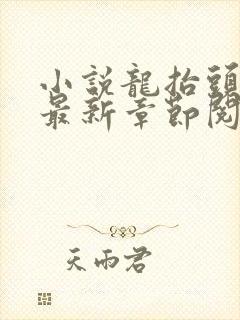 小説龍抬頭
最新章節閱
天雨君